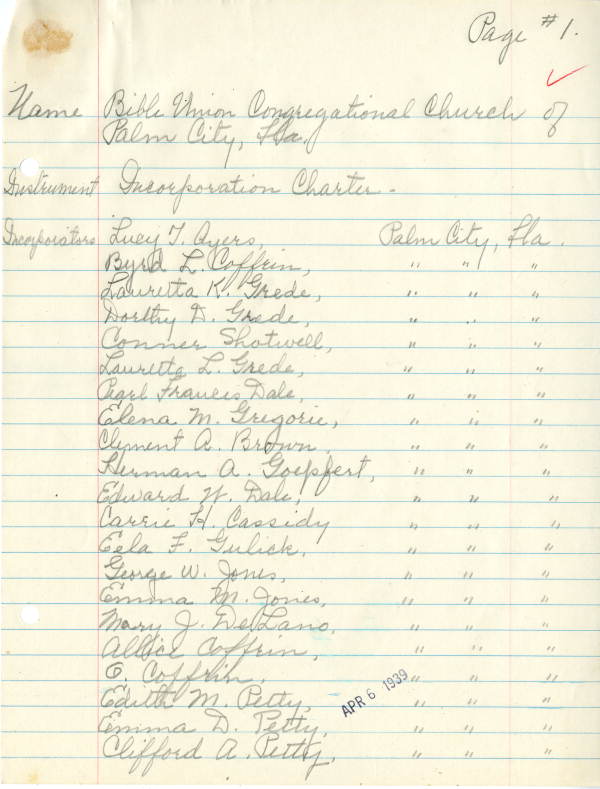 Page #1.
Name Bible Union Congregational Church of
Palm City, Fla.
Instrument Incorporation Charter -
Incorporators Lucy T. Ayers, Palm City, Fla.
Byrd L. Coffrin, " " "
Lauretta K. Grede, " " "
Dorthy D. Grede, " " "
Conner Shotwell, " " "
Lauretta L. Grede, " " "
Pearl Francis Dale, " " "
Elena M. Gregorie, " " "
Clement A. Brown, " " "
Herman A. Goepfert, " " "
Edward W. Dale, " " "
Carrie H. Cassidy " " "
Eela F. Gulick, " " "
George W. Jones, " " "
Emma M. Jones, " " "
Mary J. DeLano, " " "
Allice Coffrin, " " "
C. Coffrin, " " "
Edith M. Petty, " " "
APR 6 1939
Emma D. Petty, " " "
Clifford A. Petty, " " "